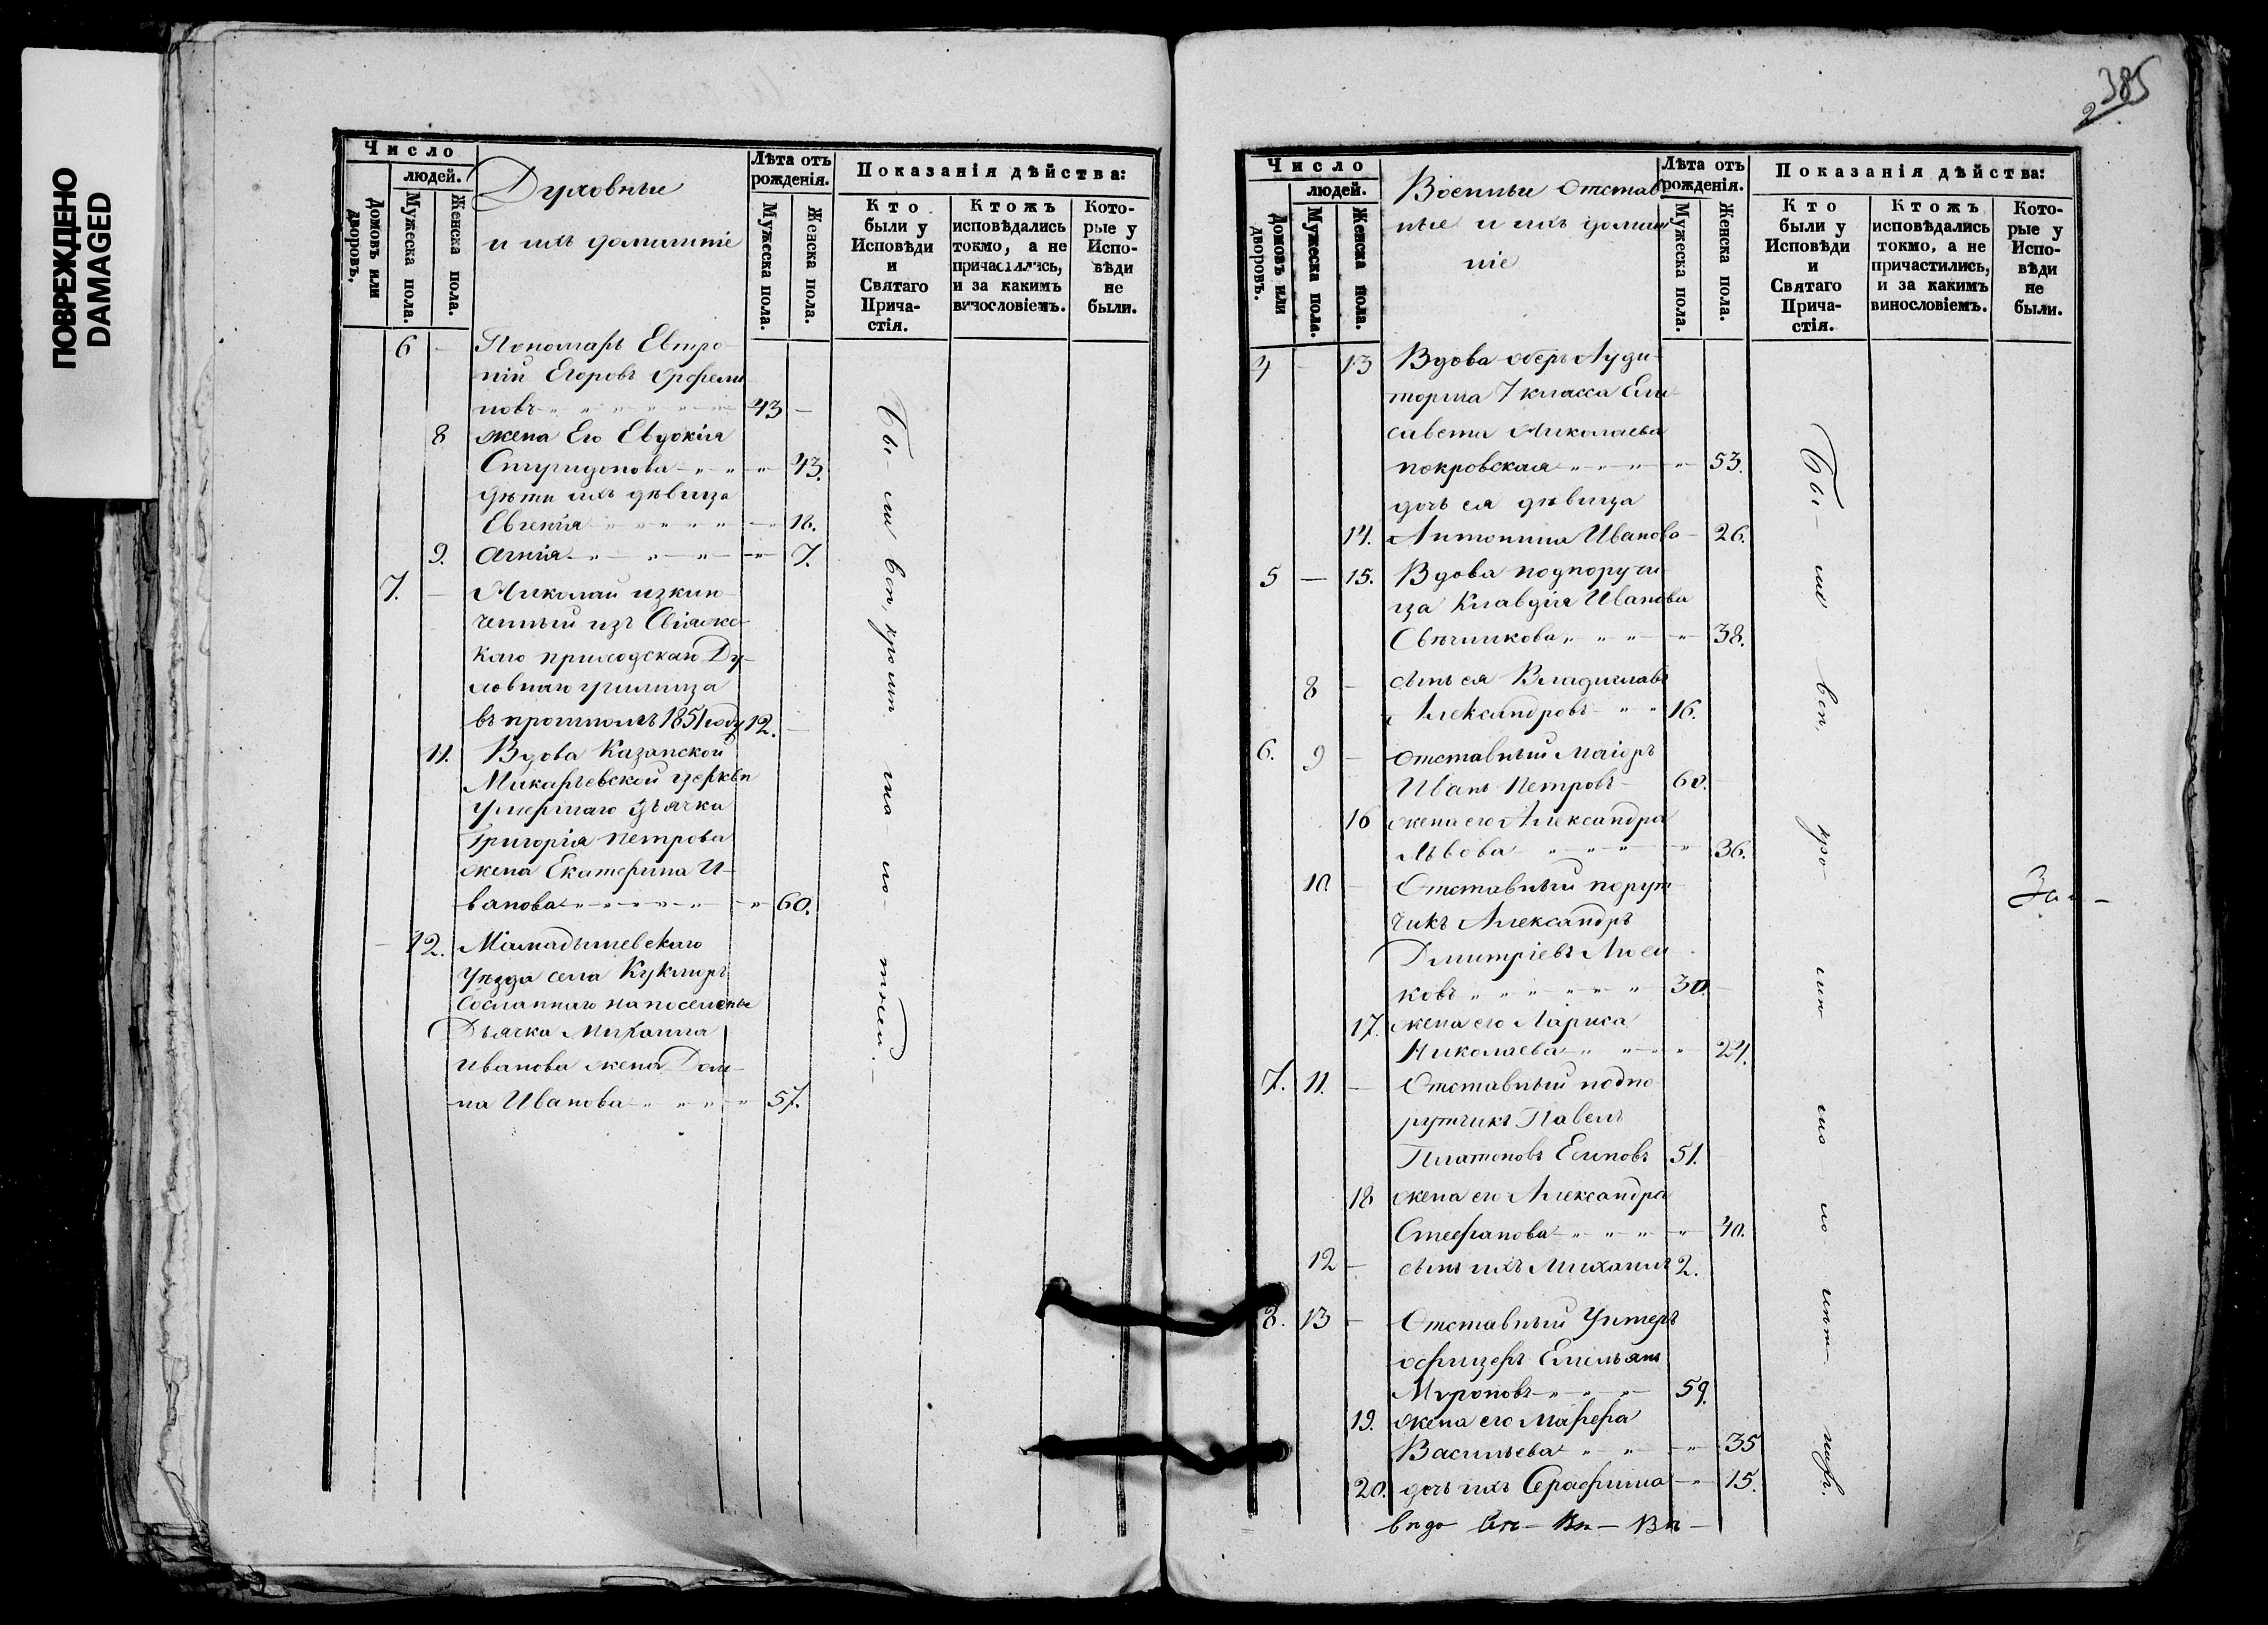 ПОВРЕЖДЕНО
DAMAGED
Число
людей.
Домовъ или дворовъ,
Мужеска пола.
Женска пола.
Духовные
и ихъ домашніе
Лѣта отъ рожденія.
Мужеска пола.
Женска пола.
Показанія дѣйства:
Кто были у Исповѣди и Святаго Прича-стія.
Ктожъ исповѣдались токмо, а не причастились, и за какимъ винословіемъ.
Кото-рые у Испо-вѣди не были.
6 - Пономарь Евтро-
пій Егоровъ
новъ 43 -
8 жена Его Евдокія
Спиридонова 43.
дѣти ихъ дѣвица
Евгенія 16.
9. Агнія 7.
7. - Николай исклю-
ченный изъ Свіяжс-
каго приходскаго Ду-
ховнаго училища
въ прошломъ 1851 году 12. -
11. Вдова Казанской
Макарьевской церкви
умершаго дьячка
Григорія Петрова
жена Екатерина И-
ванова 60.
12. Мамадышевскаго
уѣзда села Кукморъ
сосланнаго на поселенье
Дьячка Михаила
Иванова жена Дом-
на Иванова 57.
Бы- ли всѣ, кромѣ ма- ло- тнѣй.
385
2
Число
людей.
Домовъ или дворовъ.
Мужеска пола.
Женска пола.
Военные отстав-
ные и ихъ домаш-
ніе
Лѣта отъ рожденія.
Мужеска пола.
Женска пола.
Показанія дѣйства:
Кто были у Исповѣди и Святаго Прича-стія.
Ктожъ исповѣдались токмо, а не причастились, и за какимъ винословіемъ.
Кото-рые у Испо-вѣди не были.
4 - 13 Вдова оберъ Ауди-
торша 7 класса Ели-
савета Николаева
Покровская 53.
дочь ея дѣвица
14. Антонина Иванова - 26.
5 - 15. Вдова подпоручи-
ца Клавдія Иванова
Свѣчникова 38.
8 - сынъ ея Владиславъ
Александровъ 16.
6. 9 - отставный Маіоръ
Иванъ Петровъ 60.
16 жена его Александра
Львова 36.
10 - Отставный порут-
чикъ Александръ
Дмитріевъ
ковъ 30. -
17. жена его Лариса
Николаева 24.
7. 11. - Отставный подпо-
рутчикъ Павелъ
Платоновъ Есиповъ 51.
18 жена его Александра
Стефанова 40.
12 - сынъ ихъ Михаилъ 2.
8. 13 - Отставный Унтеръ
офицеръ Емельянъ
Муроновъ 59.
19. жена его Марфа
Васильева 35
20. дочь ихъ Серафима 15.
Бы- ли всѣ, кро- мѣ ма- ло лѣт-